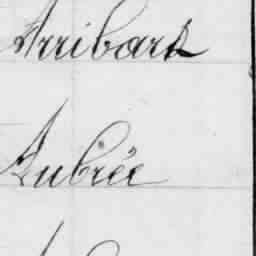 Arribard
Aubrée